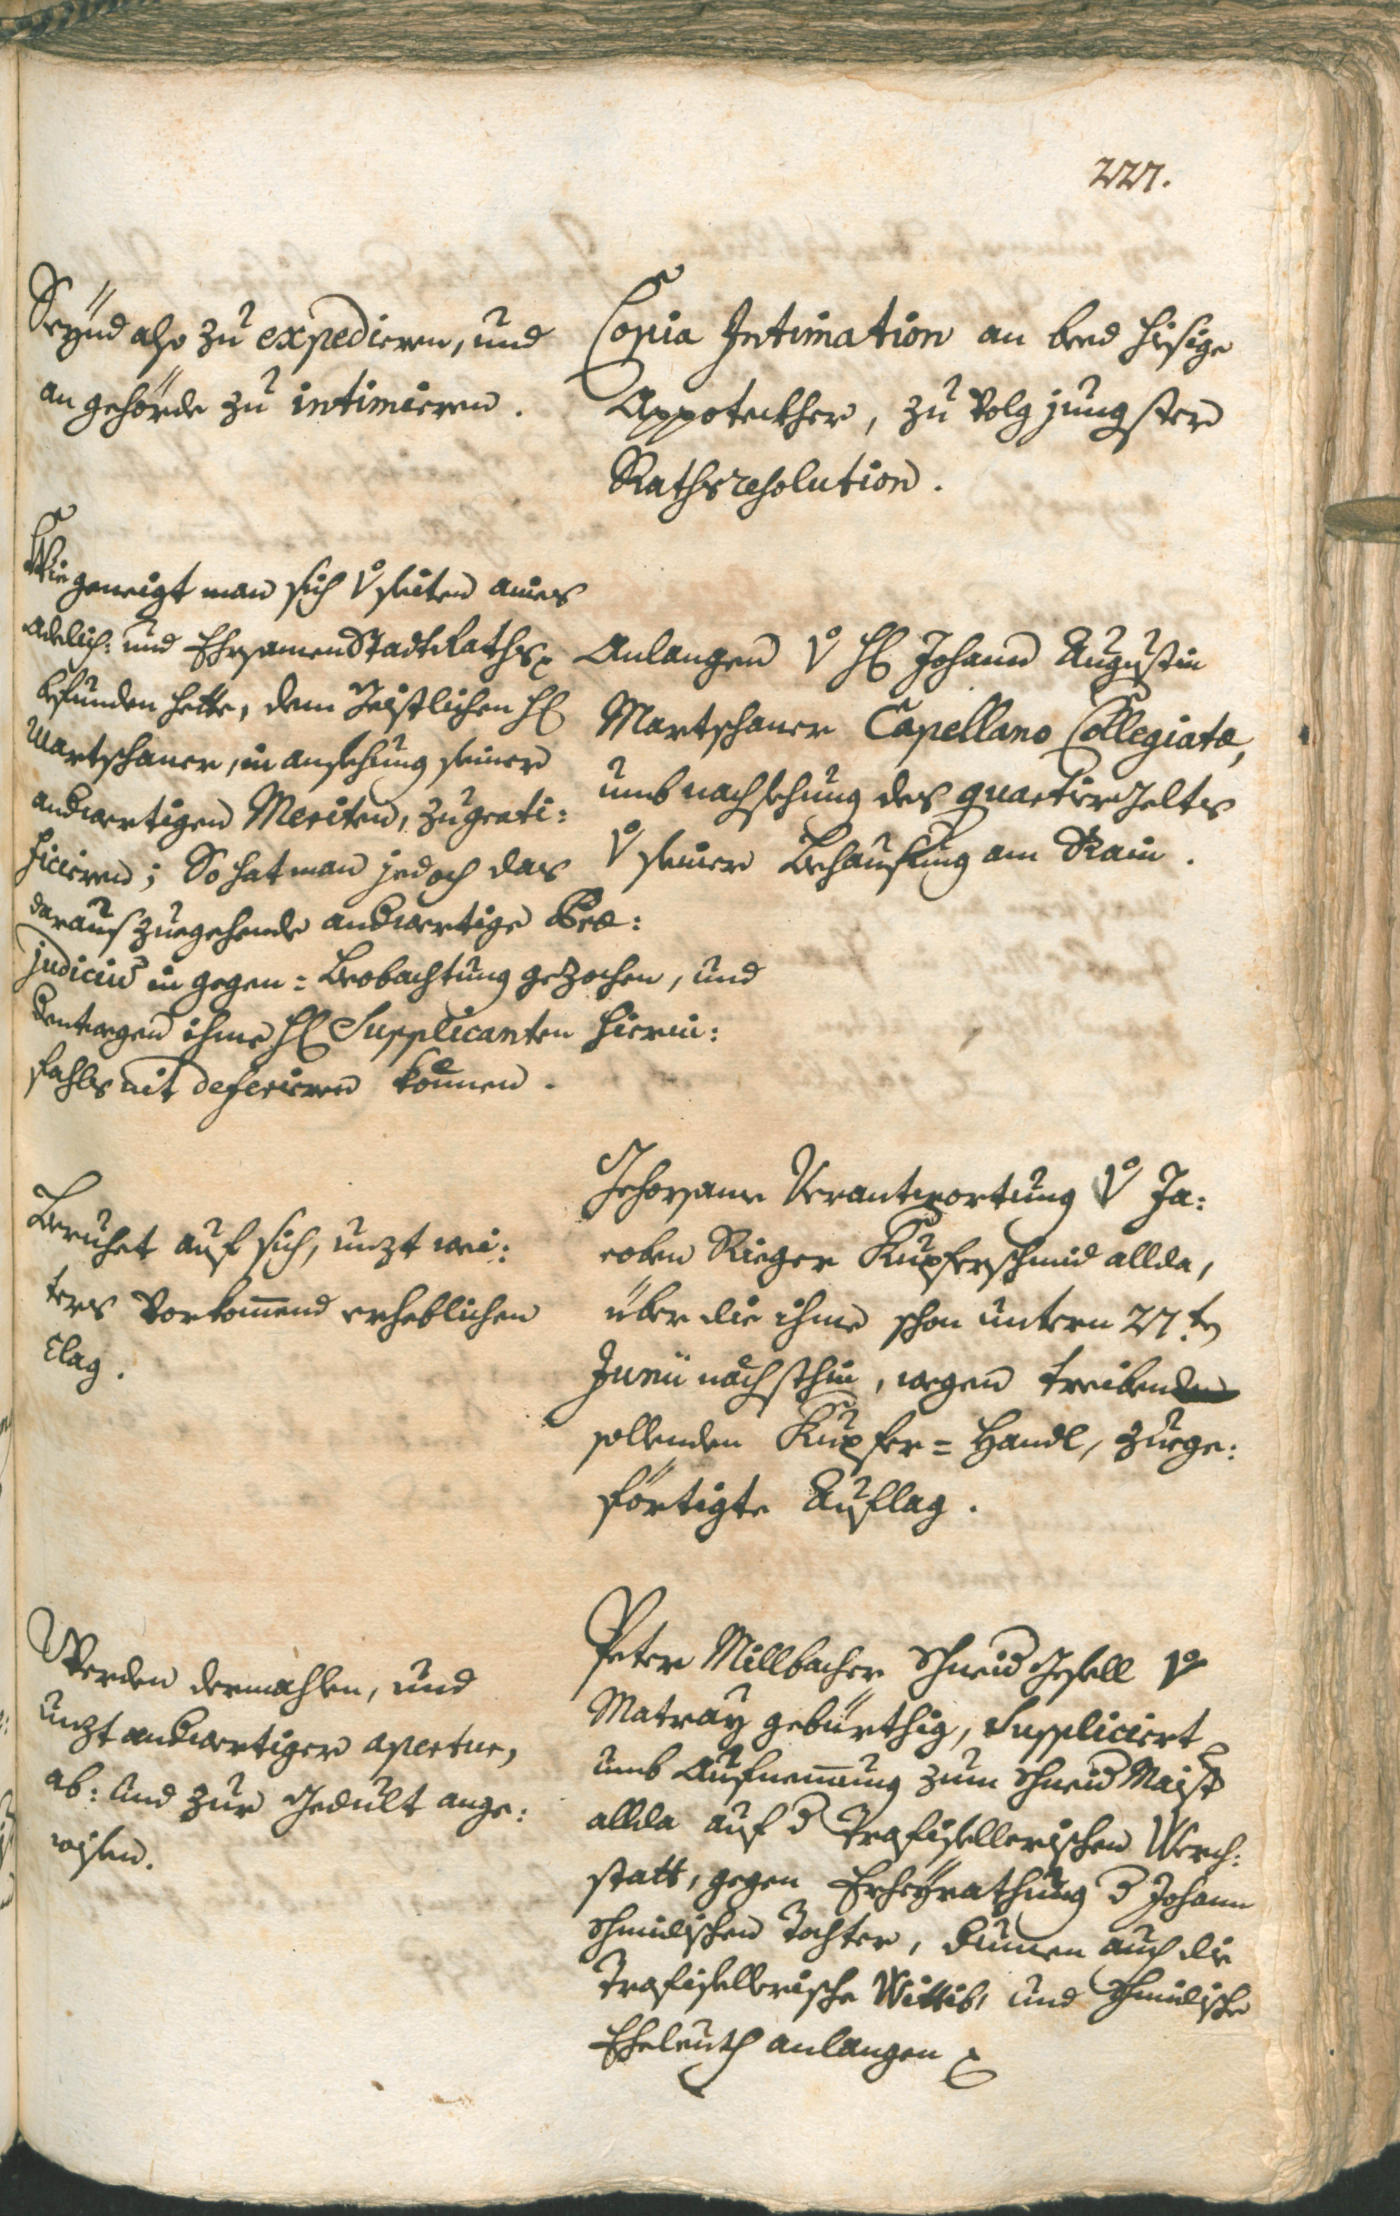 227.
Seÿnd also zu expedieren, und
an gehörde zu intimieren.
Copia Intimation an beed hisige
Appoteckher, zu Volg jungster
Rathsresolution.
Wie geneigt man sich v seiten aines
Adelich: und Ehrsamen Stadt Raths
befunden hette, dem Geistlichen H
Martschaner, in ansehung seiner
andwertigen Meriten, zu grati:
ficieren; So hat man jedoch das
daraus zuegehende andwertige Præ:
judiciũ in gegen=Beobachtung gezochen, und
dentwegen ihme H Supplicanten hierin:
fahls nit deferieren können.
Anlangen v H Johann Augustin
Martschaner Capellano Collegiatæ,
umb nachsehung des quartier Gelts
v seiner Behausung am Rain.
Beruhet auf sich, unzt wei:
ters Vorkom̃end erheblichen
Clag.
Gehorsame Verantwortung v Ja:
coben Rieger Kupferschmid allda,
über die ihme schon untern 27.ten
Junii nächsthin, wegen treiben
sollenden Kupfer=Handl, zuege:
förtigte Auflag.
Werden dermahlen, und
unzt andwertiger apertur,
ab: und zur Gedult ange:
wisen.
Peter Millbacher Schneid Gesell v
Matray gebürthig, Suppliciert
umb Aufnem̃ung zum Schneid Maist
allda auf d Trafisellerischen Werch:
statt, gegen Erheÿrathung d Johann
Schmidischen Tochter, kumen auch die
Trafisellerische Wittib, und Schmidische
Eheleuth anlangen